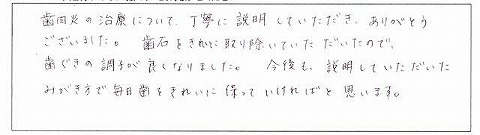 歯肉炎の治療について、丁寧に説明していただき、ありがとう
ございました。 歯石をきれいに取り除いていただいたので、
歯ぐきの調子が良くなりました。 今後も、説明していただいた
みがき方で毎日歯をきれいに保っていければと思います。